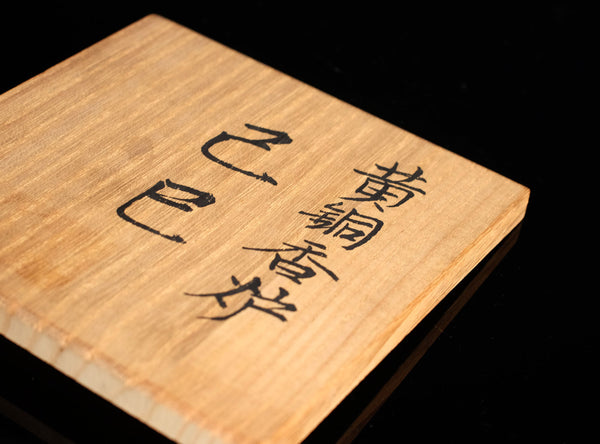 黄銅香炉
己巳